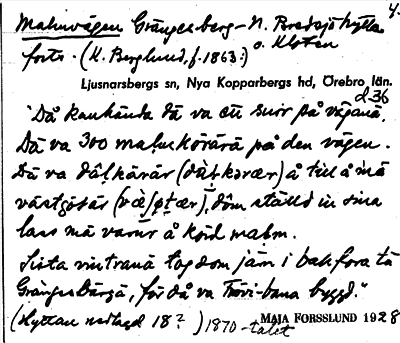 4.
Malmvägen Grängesberg - N. Bredsjö hytta
forts. (K. Berglund, f. 1863.) o. Kloten
Ljusnarsbergs sn, Nya Kopparbergs hd, Örebro län.
236
"Då kanhända dä va ett snir på vägana.
Dä va 300 malmkörärä på den vägen.
Dä va dâlkärär å till å mä
västgötär, dôm ställd in sina
lass mä varur å körd malm.
Sista vintranä tog dom järn i bakfora tä
Grängesbärgä, för då va Frövi-bana byggd."
(Hyttan nedlagd 18?) 1870-talet
MAJA FORSSLUND 1928